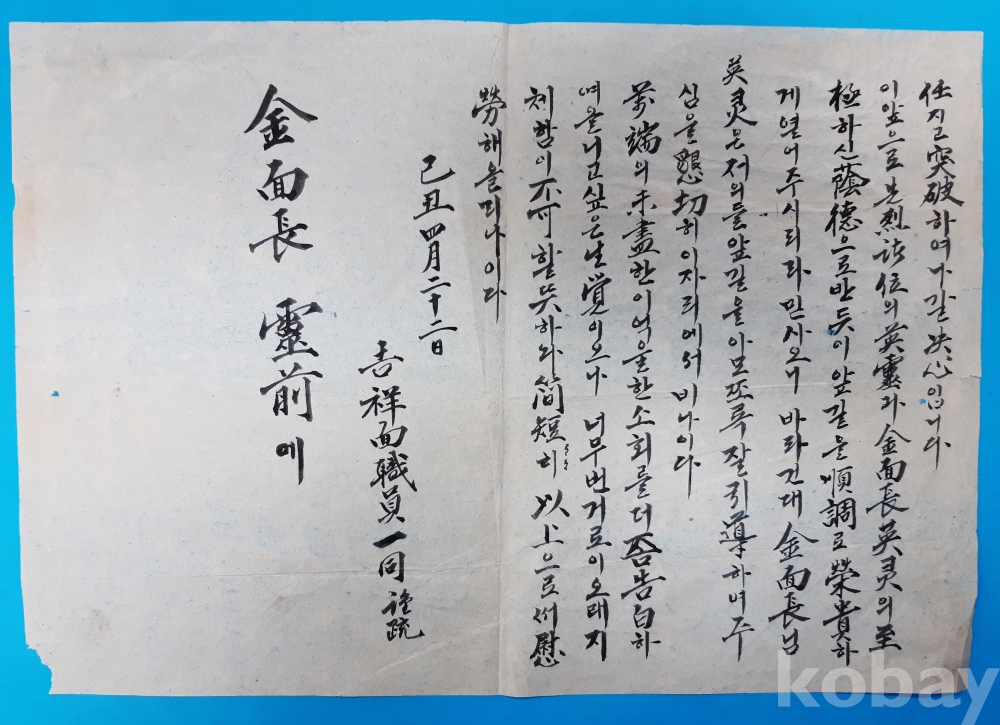 任지고 突破하여나갈 决心입니다
이앞으로 先烈諸位의 英靈과 金面長 英灵의 至
極하신 蔭德으로 반듯이 앞길을 順調로 榮貴하
게 열어주시리라 믿사오니 바라건대 金面長님
英灵은 저의들 앞길을 아모쪼록 잘 引導하여주
심을 懇切히 이자리에서 비나이다
萬端의 未盡한 이 억울한 소회를 더 告白하
여 올니고 싶은 生覺이오나 너무 번거로이 오래 지
체함이 不可할 뜻하와 簡短히 以上으로서 慰
勞해 올리나이다
己丑 四月 二十二日
吉祥面職員一同 謹疏
金面長 靈前에
kobay